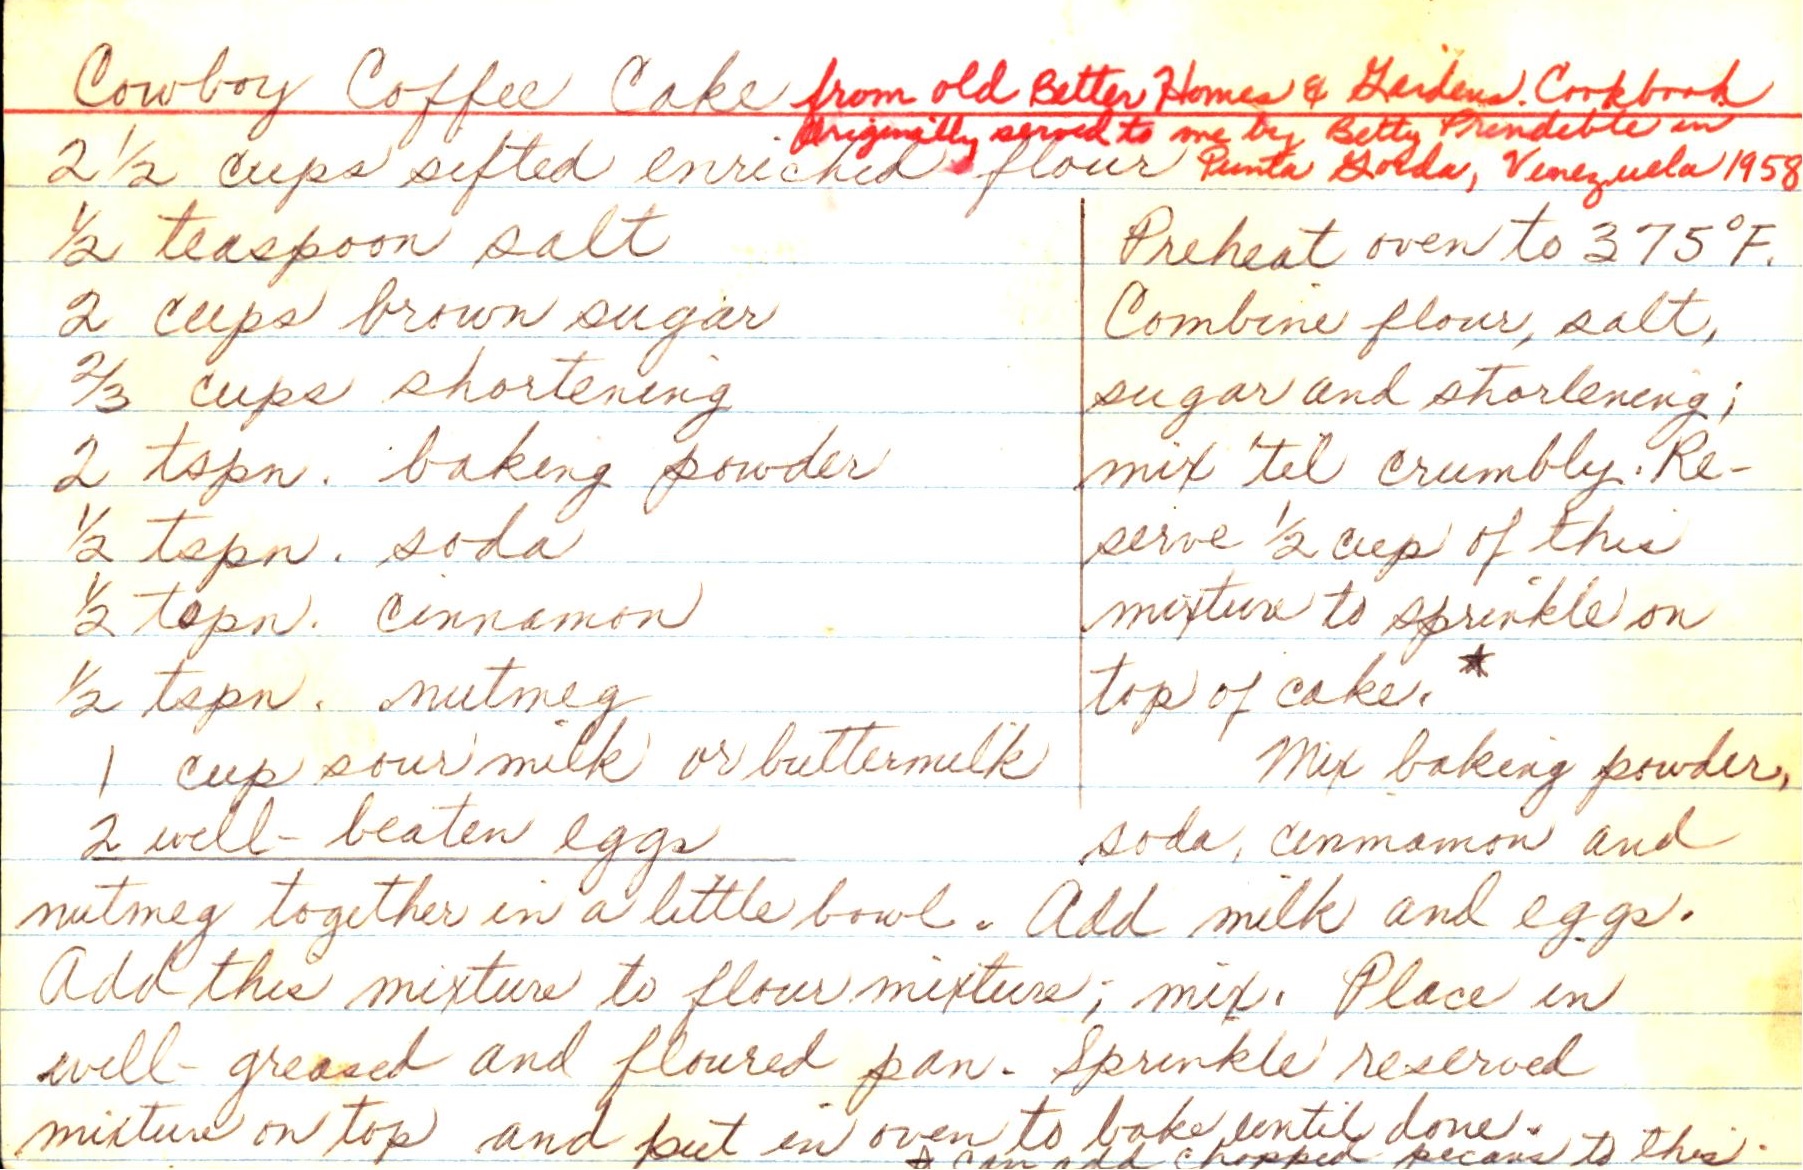 Cowboy Coffee Cake from old Better Homes & Gardens Cookbook
Originally served to me by Betty Prendible in
Punta Gorda, Venezuela 1958
2 1/2 cups sifted enriched flour
1/2 teaspoon salt
2 cups brown sugar
2/3 cups shortening
2 tspn. baking powder
1/2 tspn. soda
1/2 tspn. cinnamon
1/2 tspn. nutmeg
1 cup sour milk or buttermilk
2 well-beaten eggs
Preheat oven to 375°F.
Combine flour, salt,
sugar and shortening;
mix 'til crumbly. Re-
serve 1/2 cup of this
mixture to sprinkle on
top of cake. ★
Mix baking powder,
soda, cinnamon and
nutmeg together in a little bowl. Add milk and eggs.
Add this mixture to flour mixture; mix. Place in
well-greased and floured pan. Sprinkle reserved
mixture on top and put in oven to bake until done.
★ can add chopped pecans to this.